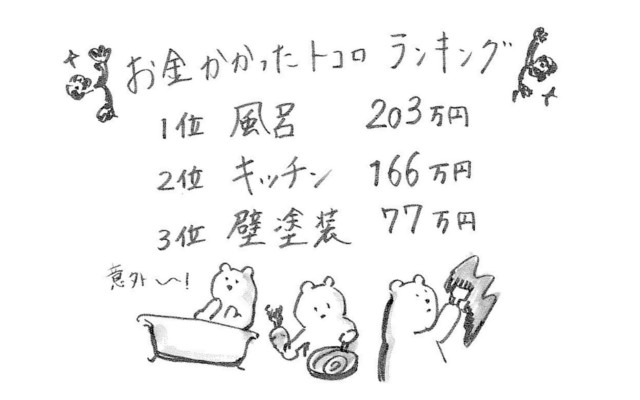 お金かかったトコロ ランキング
1位 風呂 203万円
2位 キッチン 166万円
3位 壁塗装 77万円
意外〜!